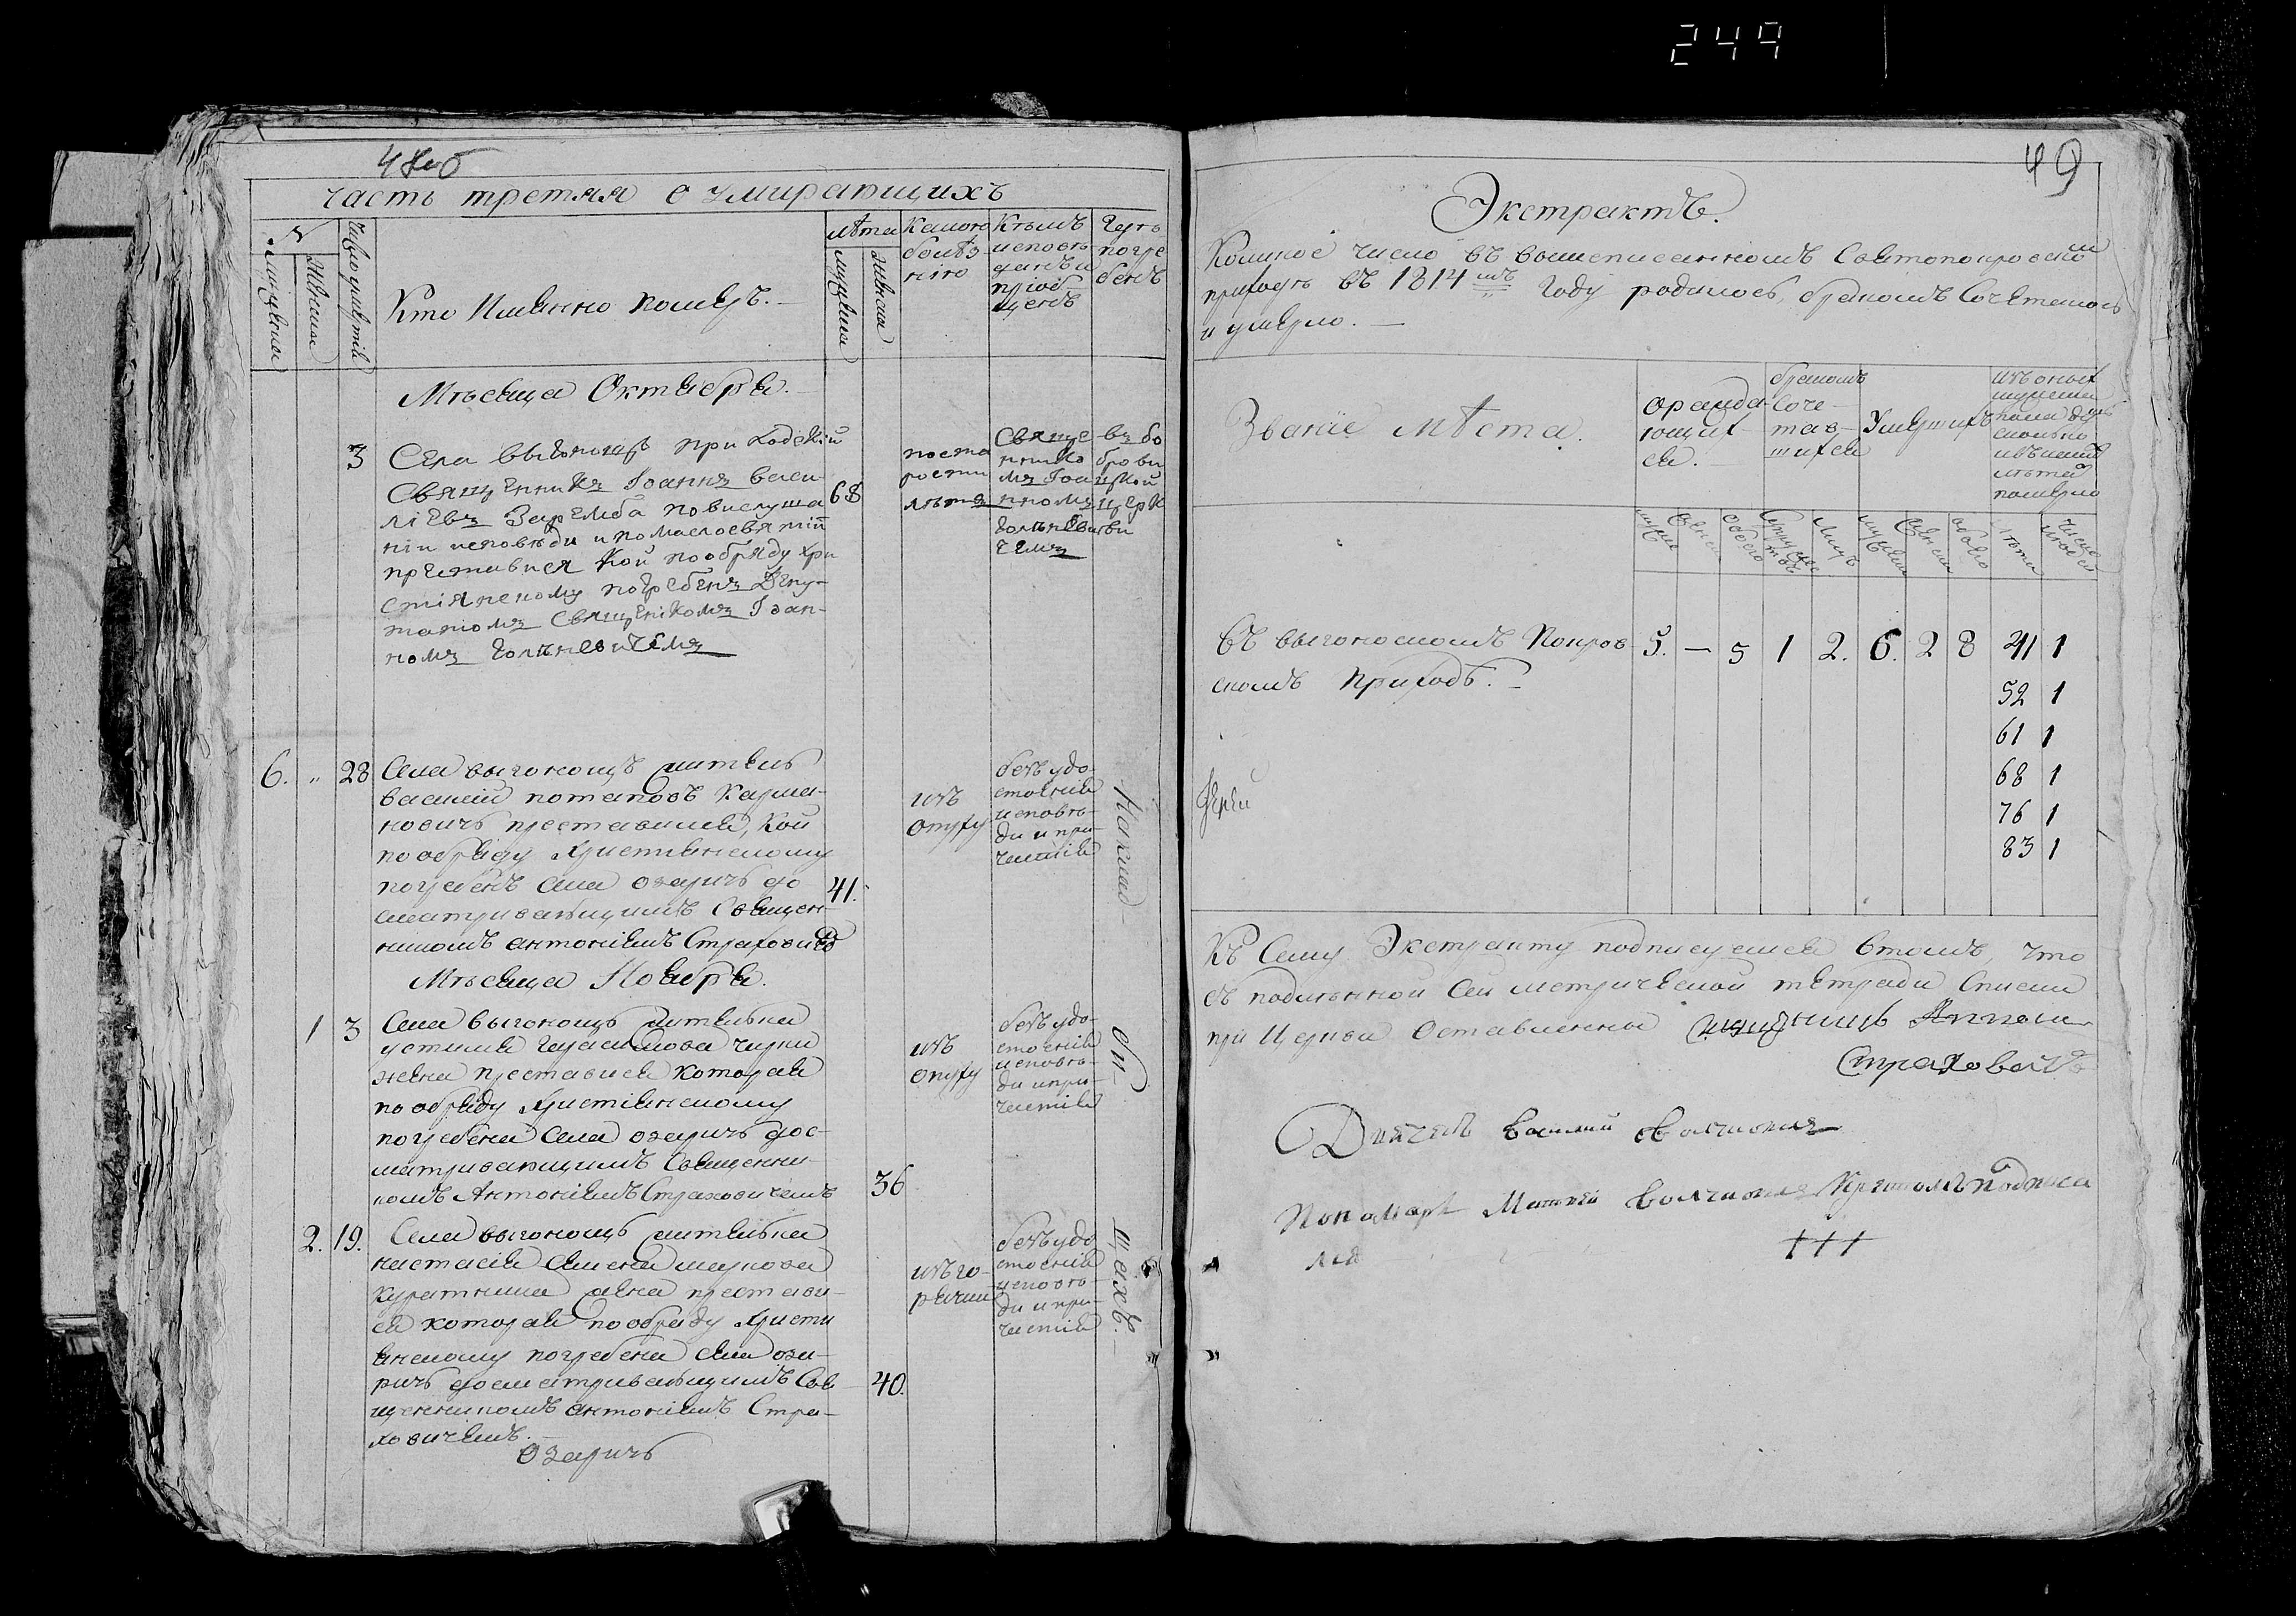 249
48 об
часть третяя о умирающихъ
№
мужеска
женска
число умертвiи
Кто Именно померъ.
лѣта
мужеска
женска
Какою болѣзнiю
Кѣмъ исповѣданъ и прiобщенъ
Гдѣ погребенъ
Мѣсяца Октября.
3
Села выгонощъ приходскiй
Священникъ Iоаннъ васи-
лiевъ Зарѣмба по выслуша
нiи исповѣди и помаслосвятiи
преставися кой по обряду Хри
стiянскому погребенъ Депу-
татомъ Священикомъ Iоан-
номъ
68
по ста
рости
лѣтъ
Свяще
нико
мъ Iоа
нномъ
въ бо
брови
цкой
церк
ви
6. „ 28
Села выгонощъ житель
василiй потаповъ Карма-
новичъ преставися, кой
по обряду Христiянскому
погребенъ села озаричъ до
сматривающимъ Священ-
никомъ антонiемъ Страхови
41.
изъ
опуху
безъ удо-
стоенiя
исповѣ-
ди и при-
частiя
Мѣсяца Ноября.
1 3
Села выгонощъ жителька
устинiя Герасимова
жена преставися которая
по обряду Христiянскому
погребена села озаричъ дос-
матривающимъ Священни-
комъ Антонiемъ Страховичемъ
36
изъ
опуху
безъ удо-
стоенiя
исповѣ-
ди и при-
частiя
2. 19.
Села выгонощъ жителька
настасiя Семена маркова
жена престави-
ся которая по обряду Христи
янскому погребена села оза-
ричъ досматривающимъ Свя-
щенникомъ антонiемъ Стра-
ховичемъ.
40.
изъ го-
рячки
безъ удо
стоенiя
исповѣ-
ди и при-
частiя
На клад-
би-
щахъ.
Озаричъ
49
Экстрактъ.
Коликое число въ вышеписанномъ Святопокровском
приходѣ въ 1814мъ Году родилось, бракомъ Сочеталось
и умерло.
Званiе мѣста.
О ражда-
ющих-
ся.
бракомъ
соче-
тав-
шихся
Умершихъ
изъ оных
мужеска
пола душъ
сколько
лѣтъ
померло
муже
женск
обоего
Супружествъ
Лицъ
мужеска
женска
обоего
лѣта
Число
Въ выгоноскомъ Покров
скомъ Приходѣ.
5. — 5 1 2. 6. 2 8 41 1
52 1
61 1
68 1
76 1
83 1
Iерей
Къ Сему Экстракту подписуемся втомъ, что
съ подлинной сей метрической тетради Списки
при Церкви Оставлены
Страховичъ
Дьячекъ василий
Пономарь Матвѣй Крестомъ подписа
лся
+++